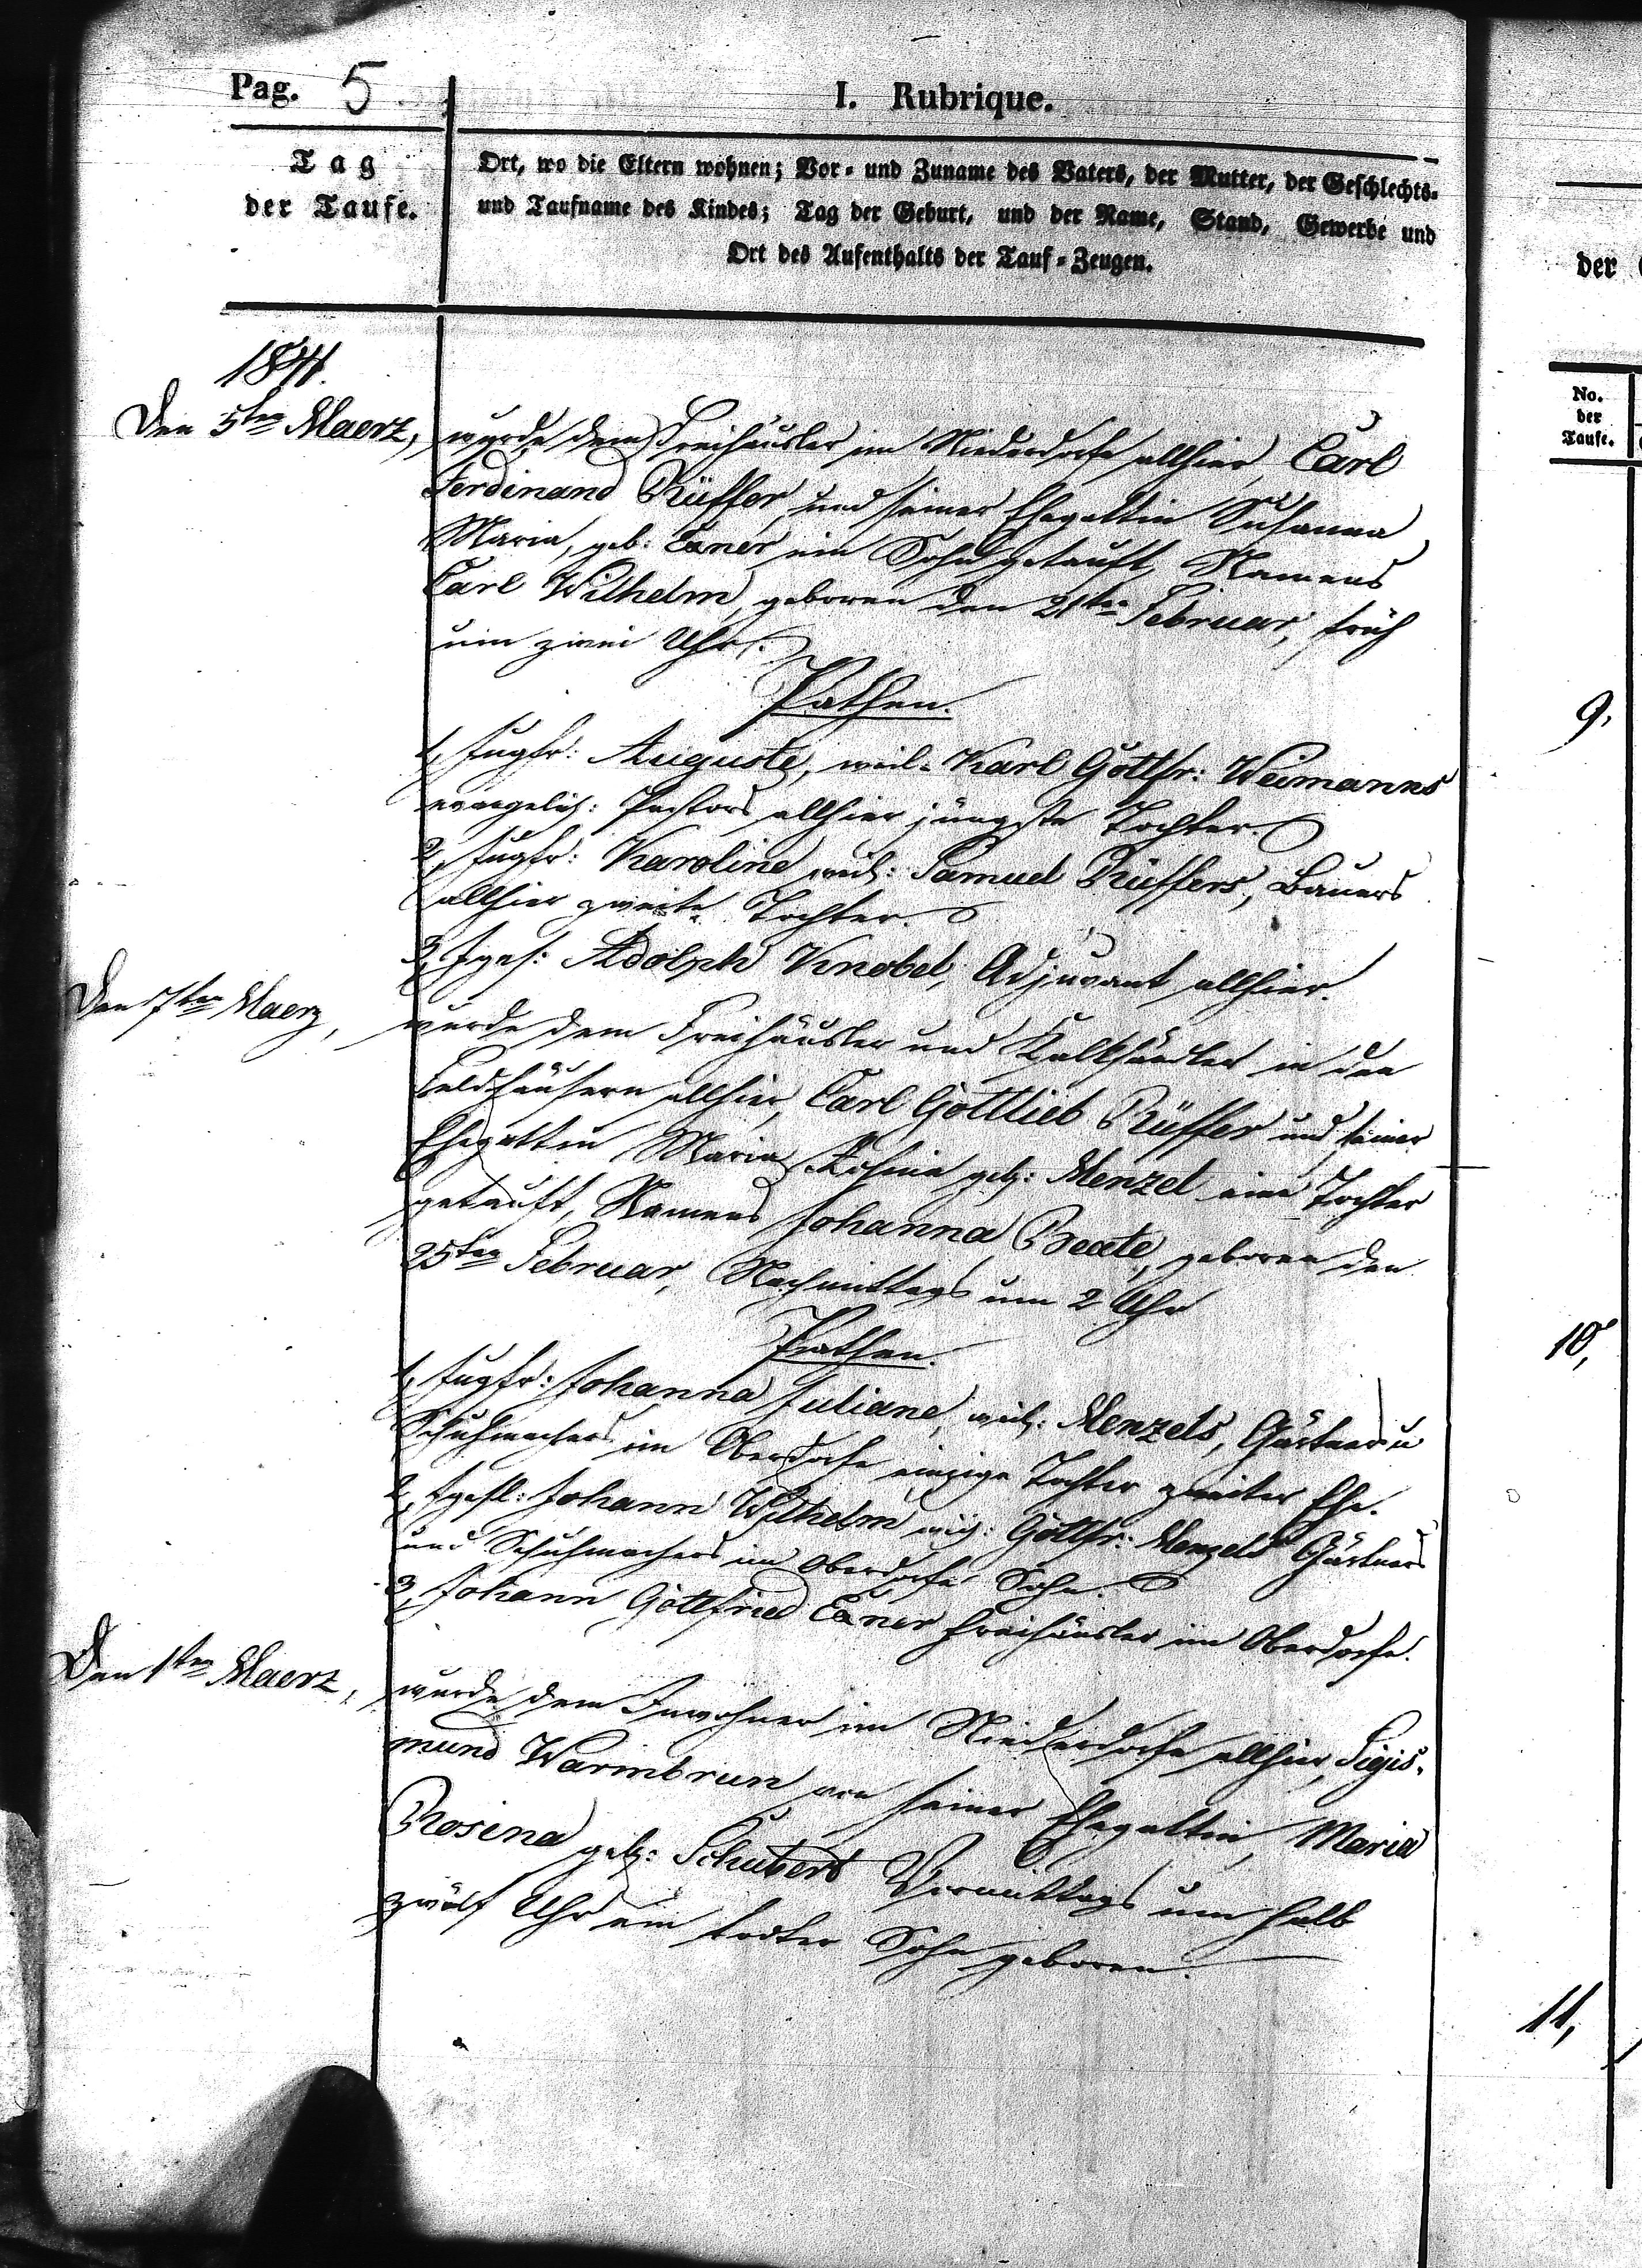 Pag. 5
I. Rubrique.
Tag
der Taufe.
Ort, wo die Eltern wohnen; Vor- und Zuname des Vaters, der Mutter, der Geschlechts-
und Taufname des Kindes; Tag der Geburt, und der Name, Stand, Gewerbe und
Ort des Aufenthalts der Tauf-Zeugen.
1841.
Den 5ten Maerz, wurde dem Freihäusler im Niederdorfe allhier, Carl
Ferdinand Rüffer, und seiner Ehegattin Susanna
Maria, geb: Exner ein Sohn getauft, Namens
Carl Wilhelm, geboren den 21ten Februar, früh
um zwei Uhr.
Pathen.
1, Jugfr: Auguste, weil. Karl Gottfr: Weimanns
evangelisch: Pastors allhier jüngste Tochter.
2, Jugfr: Karoline, weil: Samuel Rüffers, Bauers
allhier zweite Tochter.
3, Jgges: Adolph Knobel, Adjuvant allhier.
Den 7ten Maerz, wurde dem Freihäusler und Kalkhändler in den
Feldhäusern allhier, Carl Gottlieb Rüffer und seiner
Ehegattin Maria Rosina geb: Menzel eine Tochter
getauft, Namens Johanna Beate, geboren den
25ten Februar, Nachmittags um 2 Uhr
Pathen.
1, Jugfr: Johanna Juliane, weil: Menzels, Gärtner u
Schuhmachers im Oberdorfe einzige Tochter zweiter Ehe.
2, Jggesl: Johann Wilhelm, weil: Gottfr: Menzels Gärtners
und Schuhmachers im Oberdorfe Sohn.
3, Johann Gottfried Exner Freihäusler im Oberdorfe.
Den 1ten Maerz, wurde dem Inwohner im Niederdorfe allhier, Sigis-
mund Warmbrun von seiner Ehegattin, Maria
Rosina geb: Schubert Vormittags um halb
zwölf Uhr ein todter Sohn geboren.
der
No.
der
Taufe.
9,
10,
11,